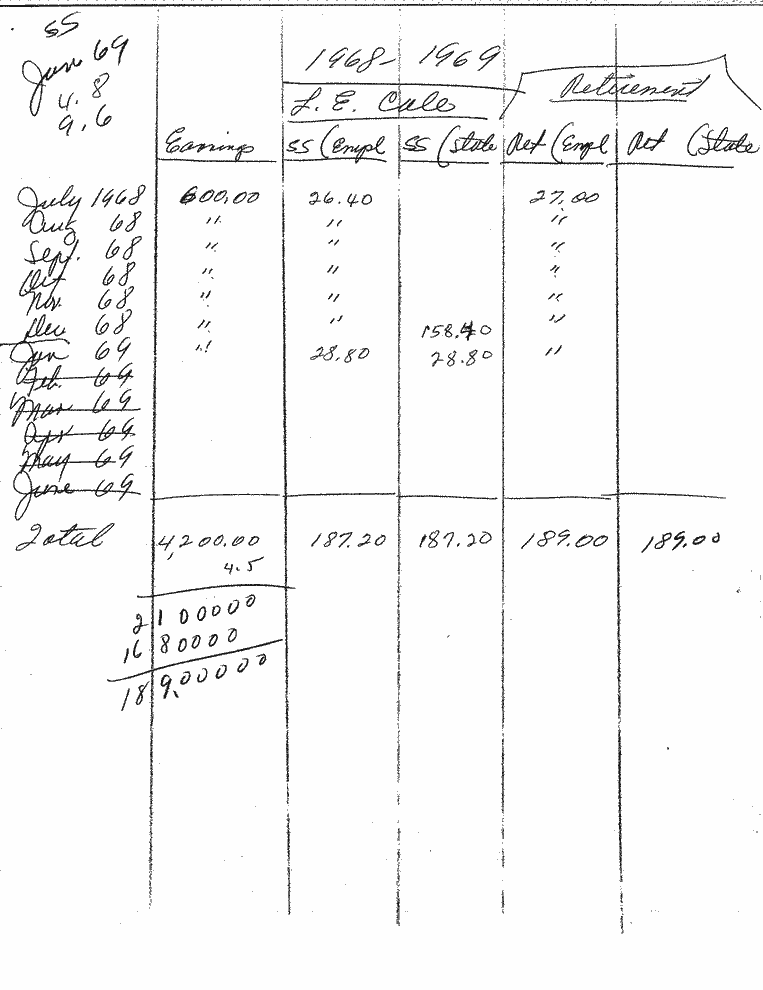 SS
Jan 69
4.8
9.6
1968- 1969
Retirement
L. E. Cale
Earnings SS (Empl SS (State Ret (Empl Ret (State
July 1968 600.00 26.40 27.00
Aug 68 " " "
Sept. 68 " " "
Oct 68 " " "
Nov. 68 " " "
Dec 68 " " 158.40 "
Jan 69 " 28.80 28.80 "
Feb. 69
Mar 69
Apr 69
May 69
June 69
Total 4,200.00 187.20 187.20 189.00 189.00
4.5
2100000
1680000
189.00000